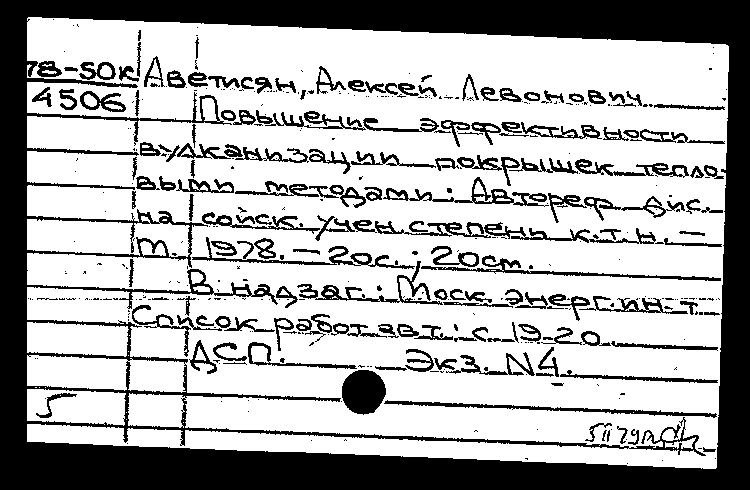 78-50к Аветисян, Алексей Левонович
4506 Повышение эффективности
вулканизации покрышек тепло-
выми методами: Автореф. дис.
на соиск. учен. степени к.т.н. —
М. 1978. — 20с.; 20см.
В надзаг.: Моск. энерг. ин-т
Список работ авт.: с. 19-20
ДСП! Экз. N4.
5